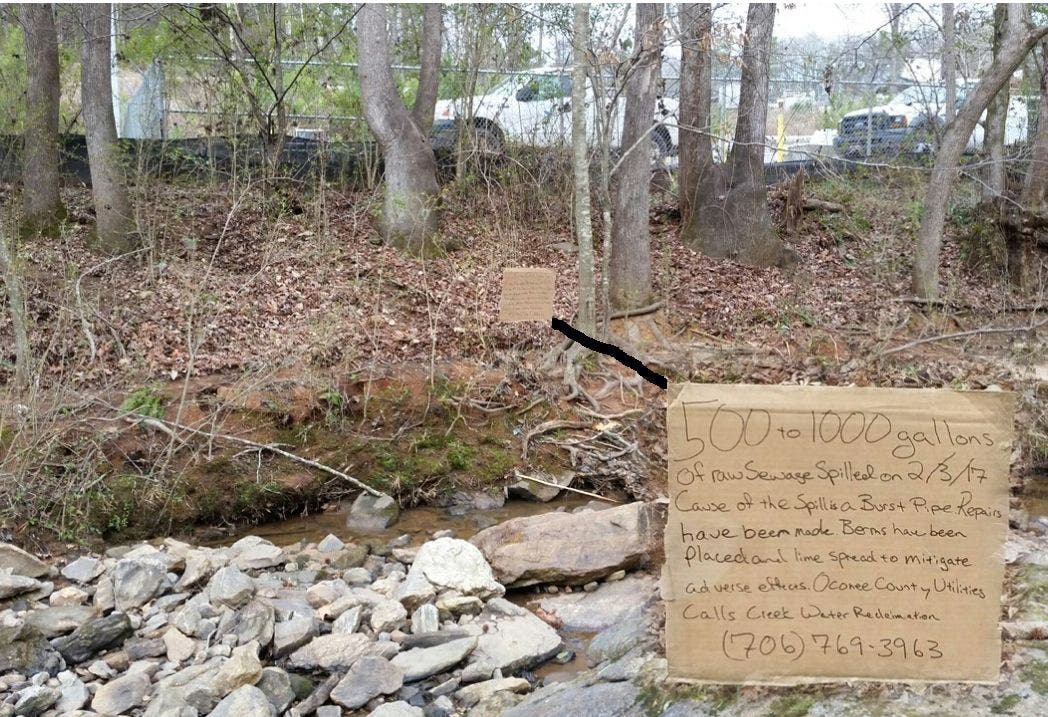 500 to 1000 gallons
of raw Sewage Spilled on 2/3/17
Cause of the Spill is a Burst Pipe. Repairs
have been made. Berms have been
Placed and lime spread to mitigate
adverse effects. Oconee County Utilities
Calls Creek Water Reclamation
(706) 769-3963